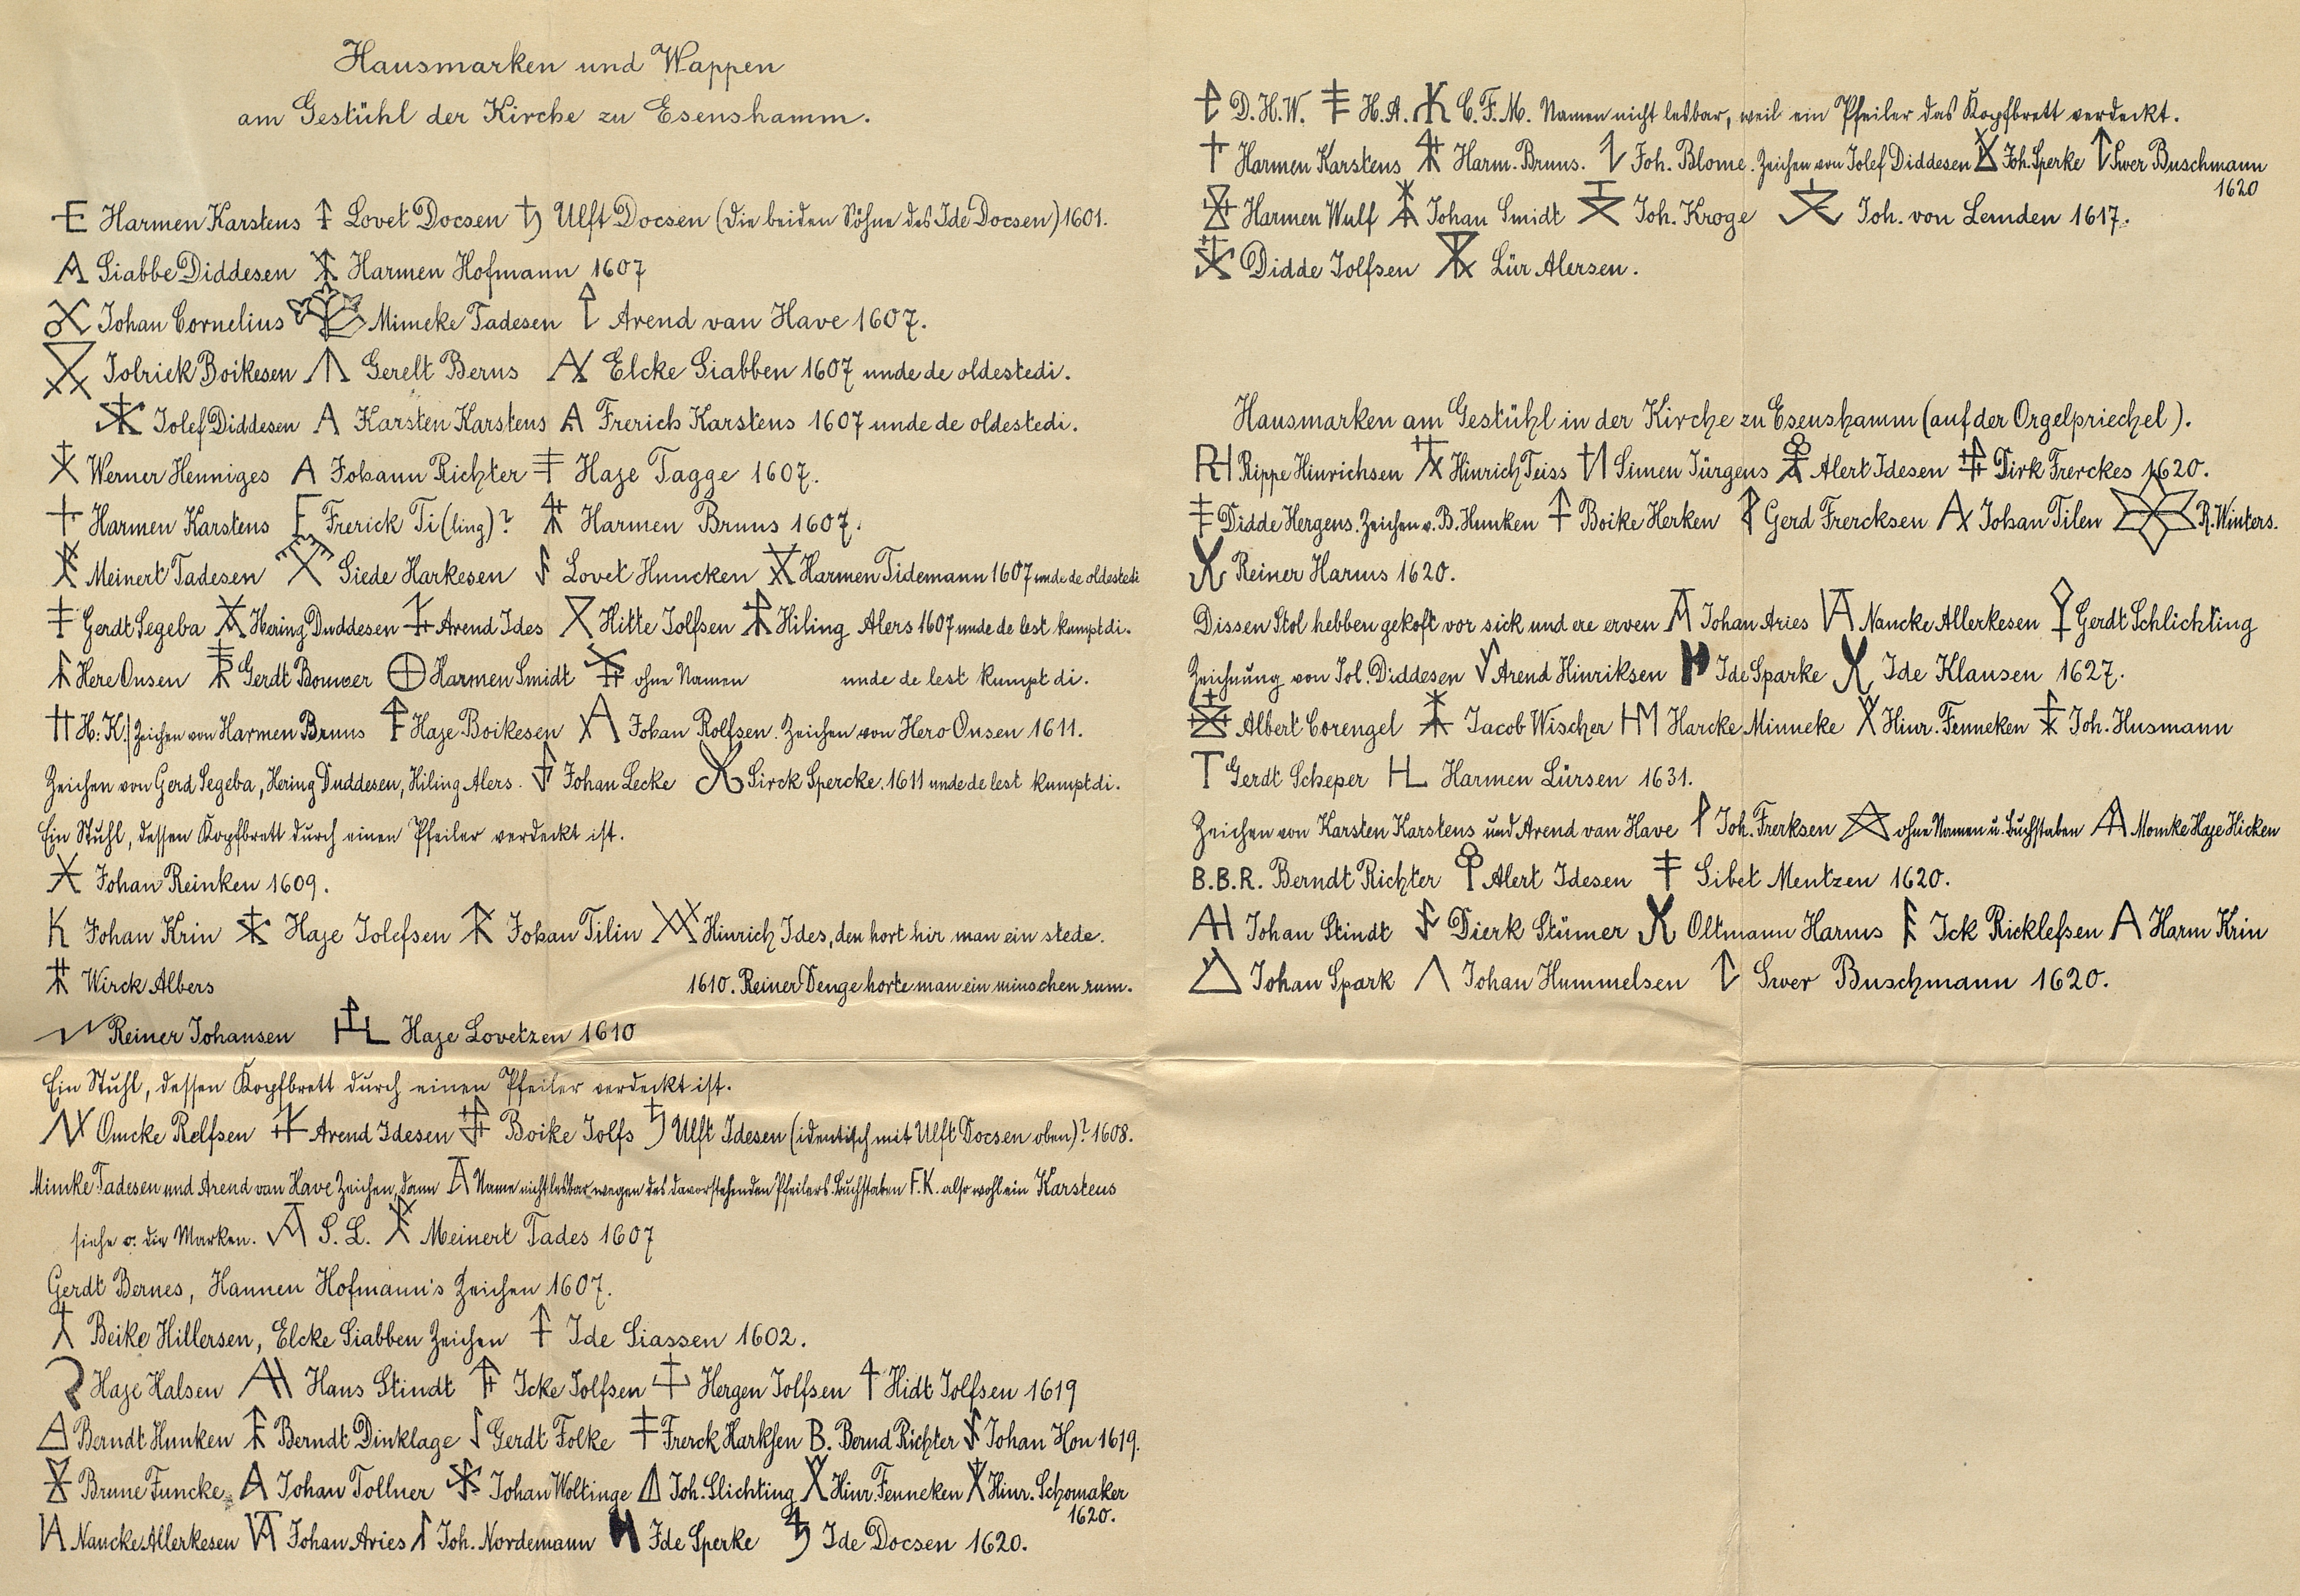 Hausmarken und Wappen
am Gestühl der Kirche zu Esenshamm.
Harmen Karstens Lovet Docsen Ulft Docsen (die beiden Söhne des Ide Docsen) 1601.
Siabbe Diddesen Harmen Hofmann 1607
Johan Cornelius Mimeke Tadesen Arend van Have 1607.
Jolrick Boikesen Gerelt Berns Elcke Siabben 1607 unde de oldestedi.
Jolef Diddesen Karsten Karstens Frerich Karstens 1607 unde de oldestedi.
Werner Henniges Johann Richter Haje Tagge 1607.
Harmen Karstens Frerick Ti(ling)? Harmen Bruns 1607.
Meinert Tadesen Siede Harkesen Lovet Huncken Harmen Tidemann 1607 unde de oldestedi
Gerdt Segeba Hering Duddesen Arend Ides Hitte Jolfsen Hiling Alers 1607 unde de lest kumpt di.
Here Onsen Gerdt Bouwer Harmen Smidt ohne Namen unde de lest kumpt di.
H. K. / Zeichen von Harmen Bruns Haje Boikesen Johan Rolfsen. Zeichen von Hero Onsen 1611.
Zeichen von Gerd Segeba, Hering Duddesen, Hiling Alers. Johan Lecke Sirck Spercke. 1611 unde de lest kumpt di.
Ein Stuhl, dessen Kopfbrett durch einen Pfeiler verdeckt ist.
Johan Reinken 1609.
K Johan Krin Haje Jolefsen Johan Tilin Hinrich Ides, den hort hir man ein stede.
Wirck Albers 1610. Reiner Denge horte man ein minschen rum.
Reiner Johansen Haje Lovetzen 1610
Ein Stuhl, dessen Kopfbrett durch einen Pfeiler verdeckt ist.
Omcke Rolfsen Arend Idesen Boike Jolfs Ulft Idesen (identisch mit Ulft Docsen oben)? 1608.
Mimke Tadesen und Arend van Have Zeichen, dann Name nicht lesbar wegen des davorstehenden Pfeilers. Buchstaben F. K. also wohl ein Karstens
siehe o. die Marken. S. L. Meinert Tades 1607
Gerdt Bernes, Hannen Hofmann's Zeichen 1607.
Beike Hillersen, Elcke Siabben Zeichen Ide Siassen 1602.
Haje Halsen Hans Stindt Icke Jolfsen Hergen Jolfsen Hidt Jolfsen 1619
Berndt Hunken Berndt Dinklage Gerdt Folke Frerck Harksen B. Bernd Richter Johan Hon 1619.
Brune Funcke Johan Tollner Johan Woltinge Joh. Slichting Hinr. Fenneken Hinr. Schomaker
1620.
Nancke Allerkesen Johan Aries Joh. Nordemann Ide Sperke Ide Docsen 1620.
D. H. W. H. A. C. F. M. Namen nicht lesbar, weil ein Pfeiler das Kopfbrett verdeckt.
Harmen Karstens Harm. Bruns. Joh. Blome. Zeichen von Jolef Diddesen Joh. Sperke Swer Buschmann
1620
Harmen Wulf Johan Smidt Joh. Kroge Joh. von Lemden 1617.
Didde Jolfsen Lür Alersen.
Hausmarken am Gestühl in der Kirche zu Esenshamm (auf der Orgelpriechel).
Rippe Hinrichsen Hinrich Teiss Simen Jürgens Alert Idesen Dirk Frerckes 1620.
Didde Hergens. Zeichen v. B. Hunken Boike Herken Gerd Frercksen Johan Tilen R. Winters.
Reiner Harms 1620.
Dissen Stol hebben gekoft vor sick und ere erven Johan Aries Nancke Allerkesen Gerdt Schlichting
Zeichnung von Jol. Diddesen Arend Hinriksen Ide Sparke Ide Klausen 1627.
Albert Corengel Jacob Wischer HM Harcke Minneke Hinr. Fenneken Joh. Husmann
Gerdt Scheper HL Harmen Lürsen 1631.
Zeichen von Karsten Karstens und Arend van Have Joh. Frerksen ohne Namen u. Buchstaben Momke Haje Hicken
B. B. R. Berndt Richter Alert Idesen Sibet Mentzen 1620.
Johan Stindt Dierk Stümer Oltmann Harms Ick Ricklefsen Harm Krin
Johan Spark Johan Hummelsen Swer Buschmann 1620.